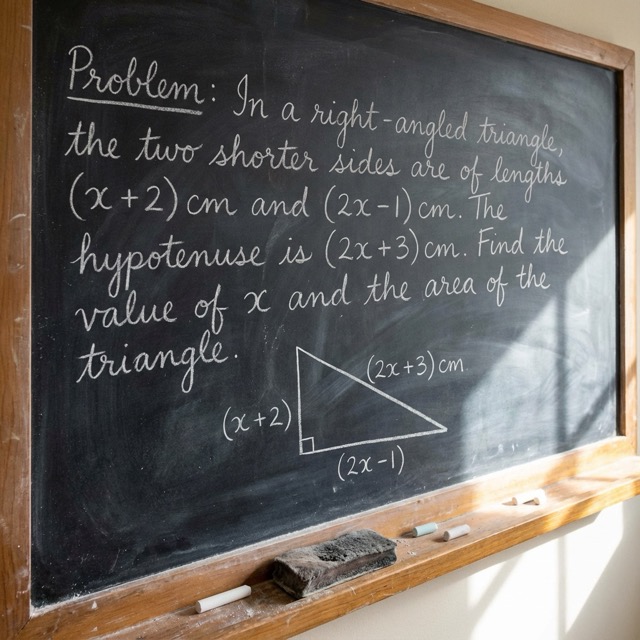 Problem: In a right-angled triangle,
the two shorter sides are of lengths
(x+2) cm and (2x-1) cm. The
hypotenuse is (2x+3) cm. Find the
value of x and the area of the
triangle.
(2x+3) cm
(x+2)
(2x-1)